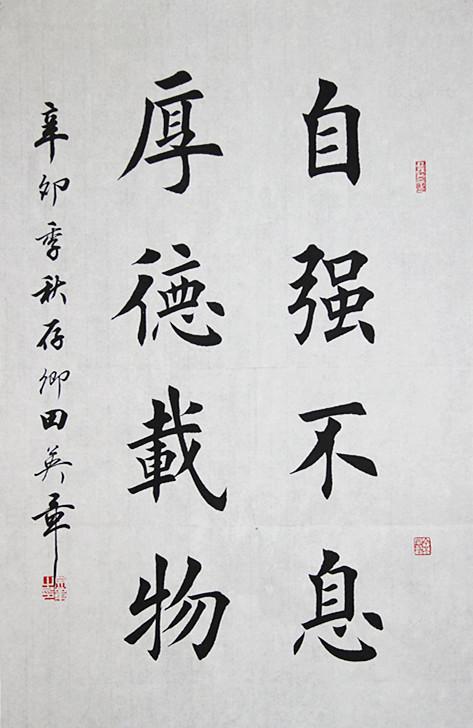 自强不息
厚德載物
辛卯季秋存卿田英章